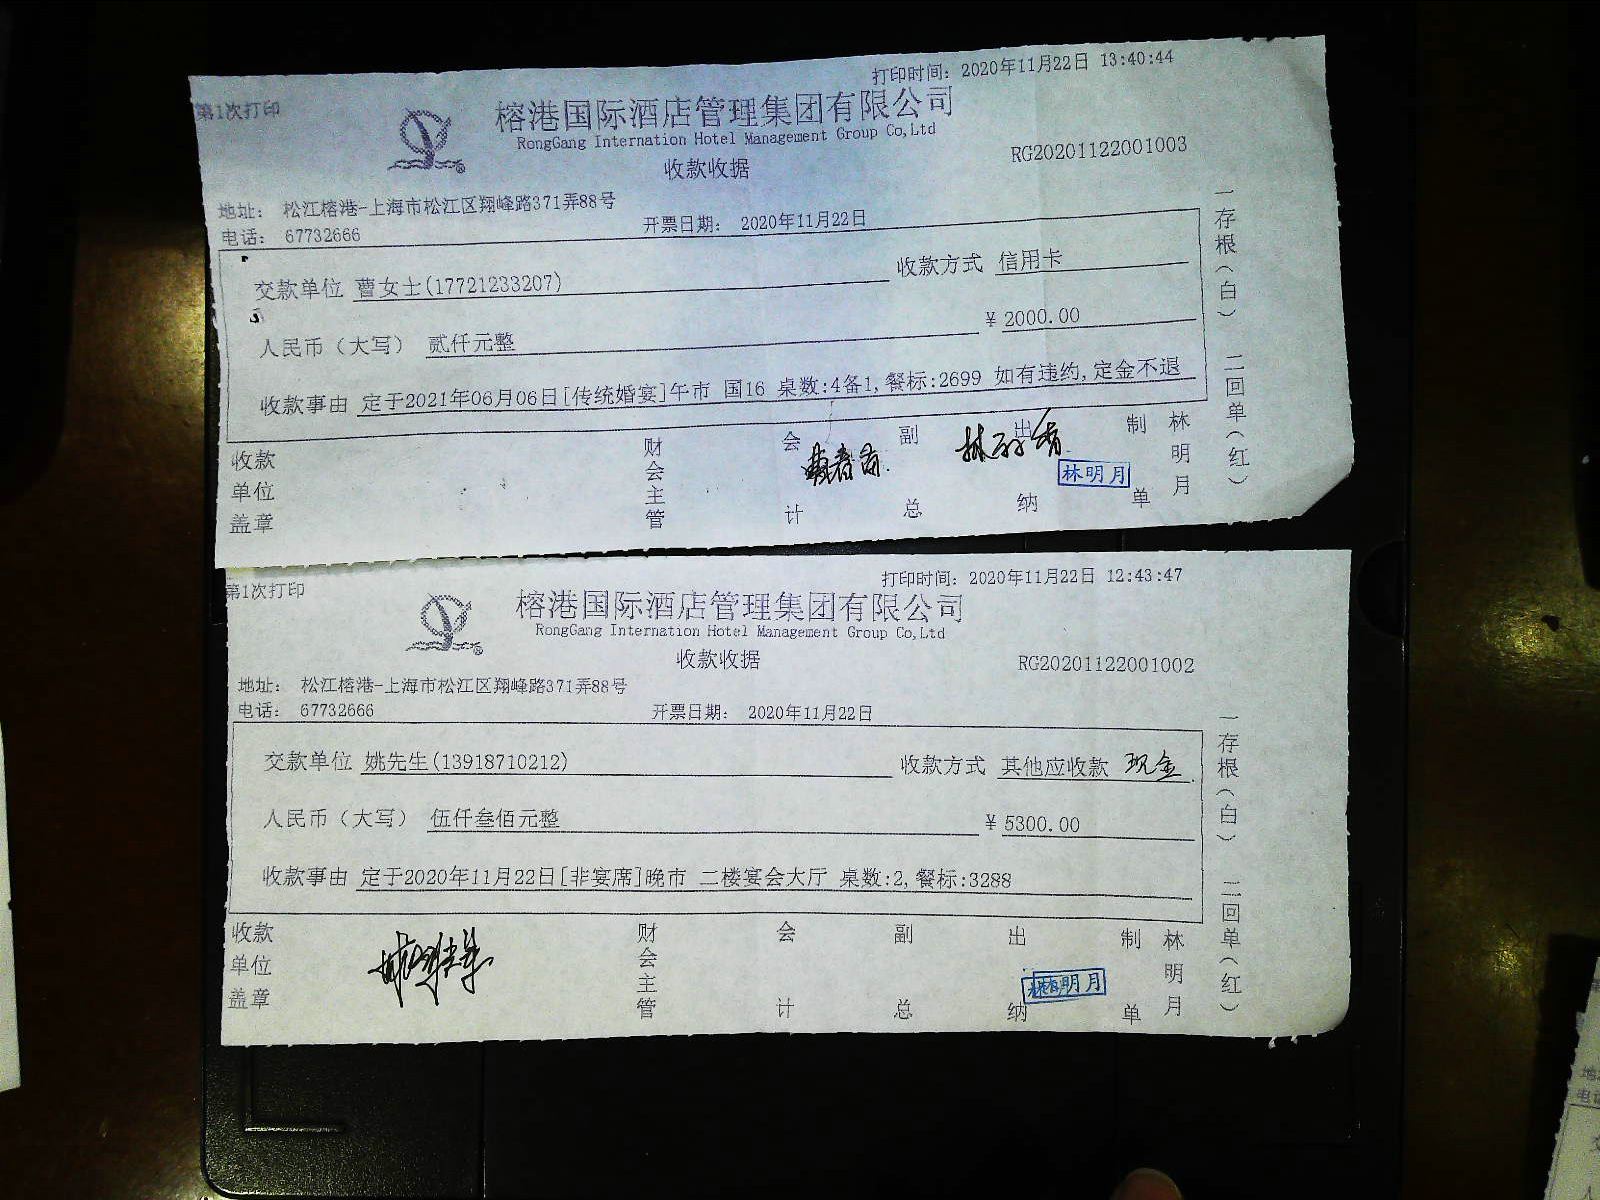 打印时间：2020年11月22日 13:40:44
第1次打印
榕港国际酒店管理集团有限公司
RongGang Internation Hotel Management Group Co,Ltd
收款收据
RG20201122001003
地址： 松江榕港-上海市松江区翔峰路371弄88号
电话： 67732666
开票日期： 2020年11月22日
交款单位 曹女士(17721233207)
收款方式 信用卡
人民币（大写） 贰仟元整
￥2000.00
收款事由 定于2021年06月06日[传统婚宴]午市 国16 桌数:4备1,餐标:2699 如有违约,定金不退
收款单位盖章
财会主管
会计
副总
出纳
林明月
制单
林明月
一存根(白) 二回单(红)
打印时间：2020年11月22日 12:43:47
第1次打印
榕港国际酒店管理集团有限公司
RongGang Internation Hotel Management Group Co,Ltd
收款收据
RG20201122001002
地址： 松江榕港-上海市松江区翔峰路371弄88号
电话： 67732666
开票日期： 2020年11月22日
交款单位 姚先生(13918710212)
收款方式 其他应收款 现金
人民币（大写） 伍仟叁佰元整
￥5300.00
收款事由 定于2020年11月22日[非宴席]晚市 二楼宴会大厅 桌数:2,餐标:3288
收款单位盖章
财会主管
会计
副总
出纳
林明月
制单
林明月
一存根(白) 二回单(红)